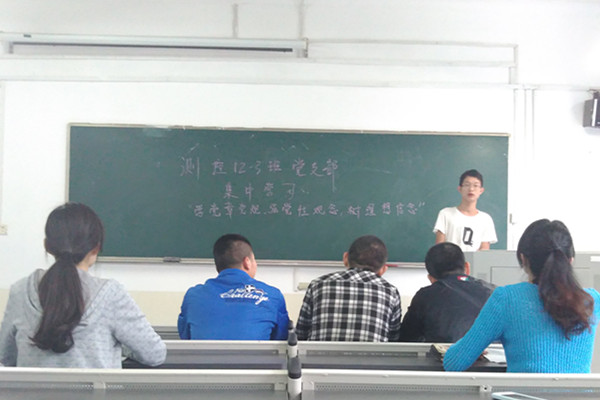 测控12-3班党支部
集中学习
"党章党规、党性观念、树理想信念"
Q
Challenge